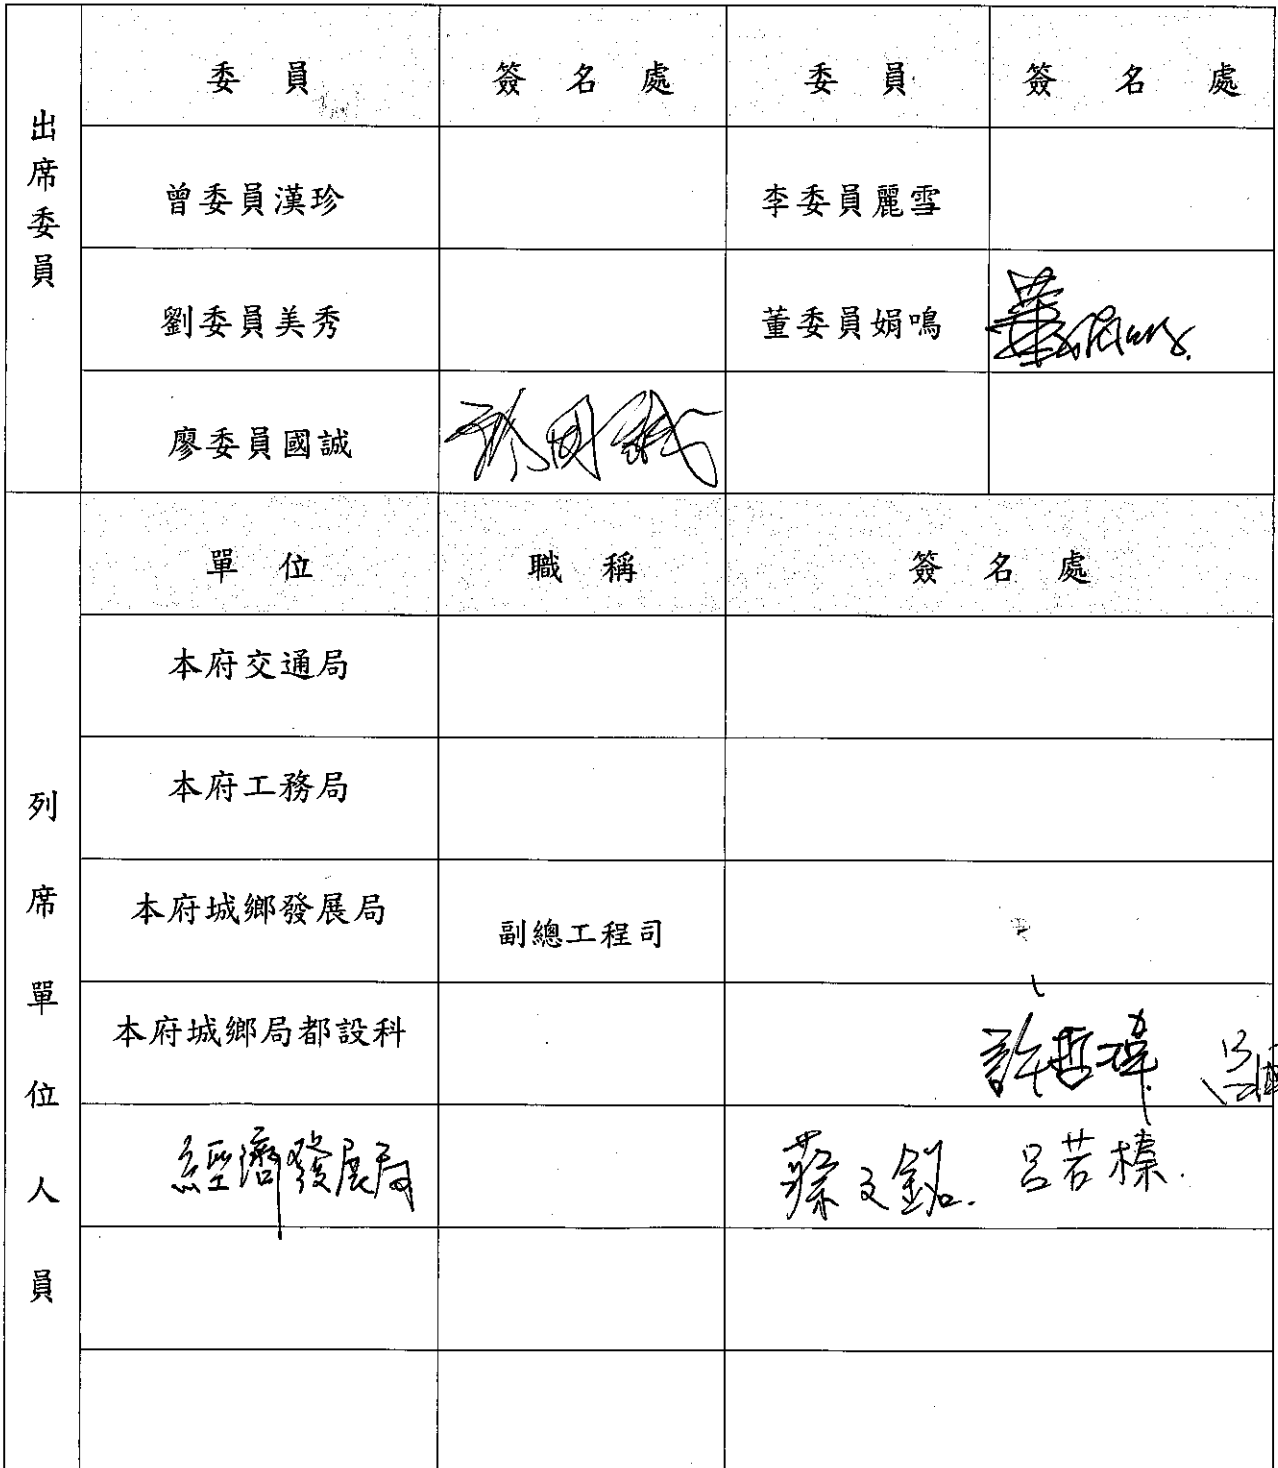 出席委員
委員 簽名處 委員 簽名處
曾委員漢珍 李委員麗雪
劉委員美秀 董委員娟鳴 董娟鳴
廖委員國誠 廖國誠
列席單位人員
單位 職稱 簽名處
本府交通局
本府工務局
本府城鄉發展局 副總工程司
本府城鄉局都設科 許哲瑋
經濟發展局 蔡文銘 呂若榛